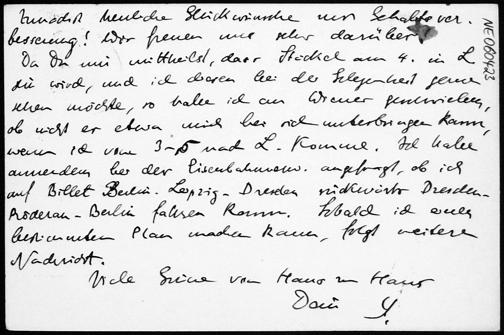 Zunächst herzliche Glückwünsche zur Gehaltsver-
besserung! Wir freuen uns sehr darüber
Da Du mir mittheilst, dass Stäckel am 4. in L
sein wird, und ich diesen bei der Gelegenheit gerne
sehen möchte, so habe ich an Wiener geschrieben,
ob nicht er etwa mich bei sich unterbringen kann,
wenn ich vom 3-5 nach L. komme. Ich habe
ausserdem bei der Eisenbahnverw. angefragt, ob ich
auf Billet Berlin-Leipzig-Dresden rückwärts Dresden-
Röderau-Berlin fahren kann. Sobald ich einen
bestimmten Plan machen kann, folgt weitere
Nachricht.
Viele Grüsse von Haus zu Haus
Dein
NE060423